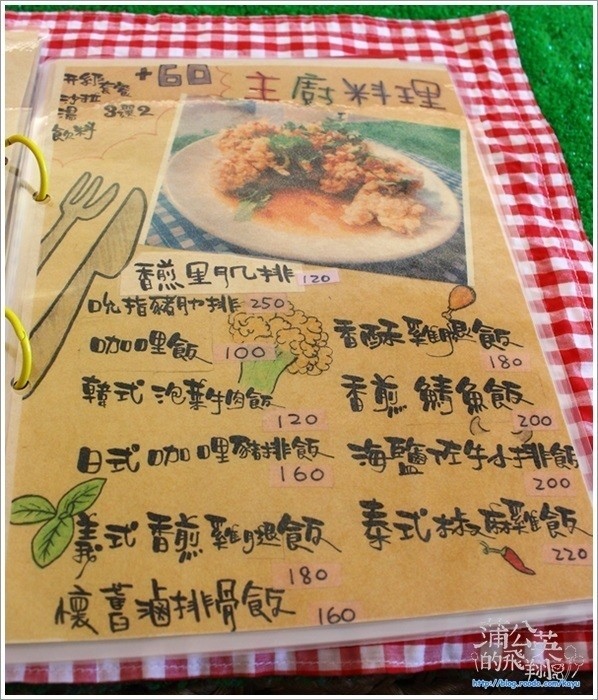 升級套餐 +60
沙拉
湯 3選2
飲料
主廚料理
香煎里肌排 120
吮指豬肋排 250
咖哩飯 100
韓式泡菜牛肉飯 120
日式咖哩豬排飯 160
義式香煎雞腿飯 180
懷舊滷排骨飯 160
香酥雞腿飯 180
香煎鯖魚飯 200
海鹽佐牛小排飯 200
泰式椒麻雞飯 220
蒲公英的飛翔
http://blog.roodo.com/kayu